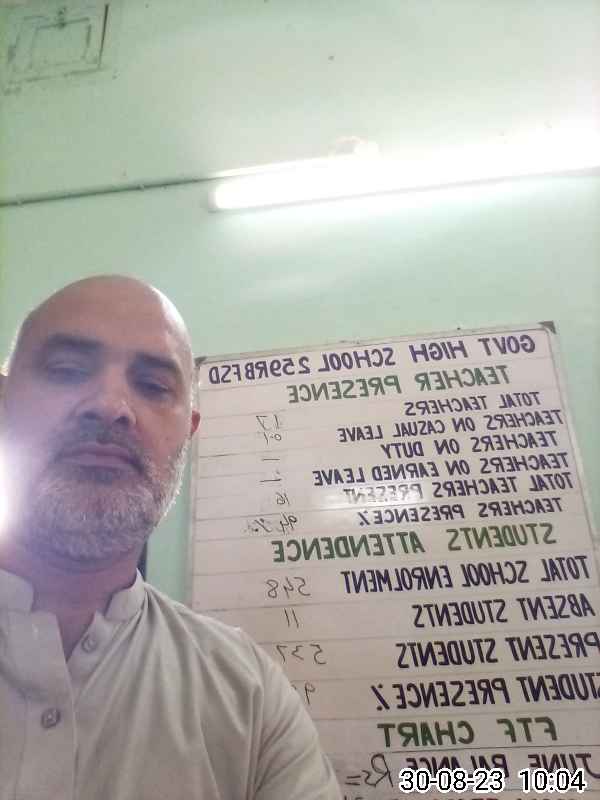 GOVT HIGH SCHOOL 259RBFSD
TEACHER PRESENCE
TOTAL TEACHERS 17
TEACHERS ON CASUAL LEAVE 01
TEACHERS ON DUTY -
TEACHERS ON EARNED LEAVE -
TOTAL TEACHERS PRESENT 16
TEACHERS PRESENCE % 94%
STUDENTS ATTENDENCE
TOTAL SCHOOL ENROLMENT 548
ABSENT STUDENTS 11
PRESENT STUDENTS 537
STUDENT PRESENCE %
FTF CHART
JUNE BALANCE Rs=
30-08-23 10:04